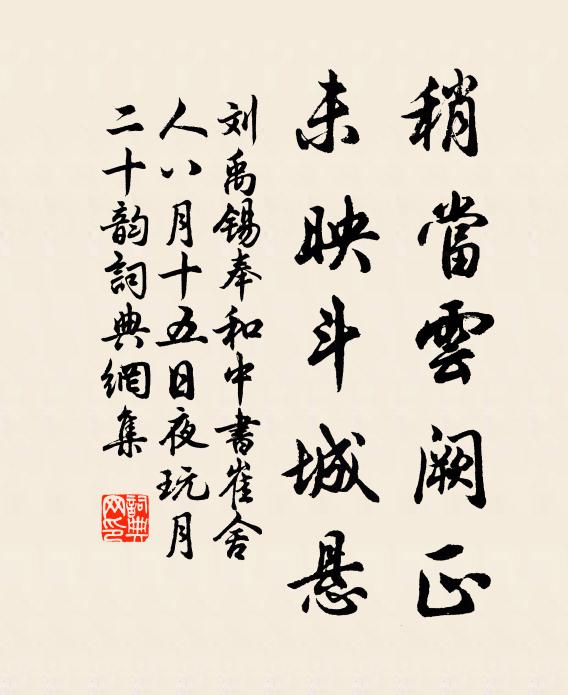 稍當雲闕正
未映斗城悬
刘禹锡奉和中書崔舍
人八月十五日夜玩月
二十韵詞典網集
詞典网印